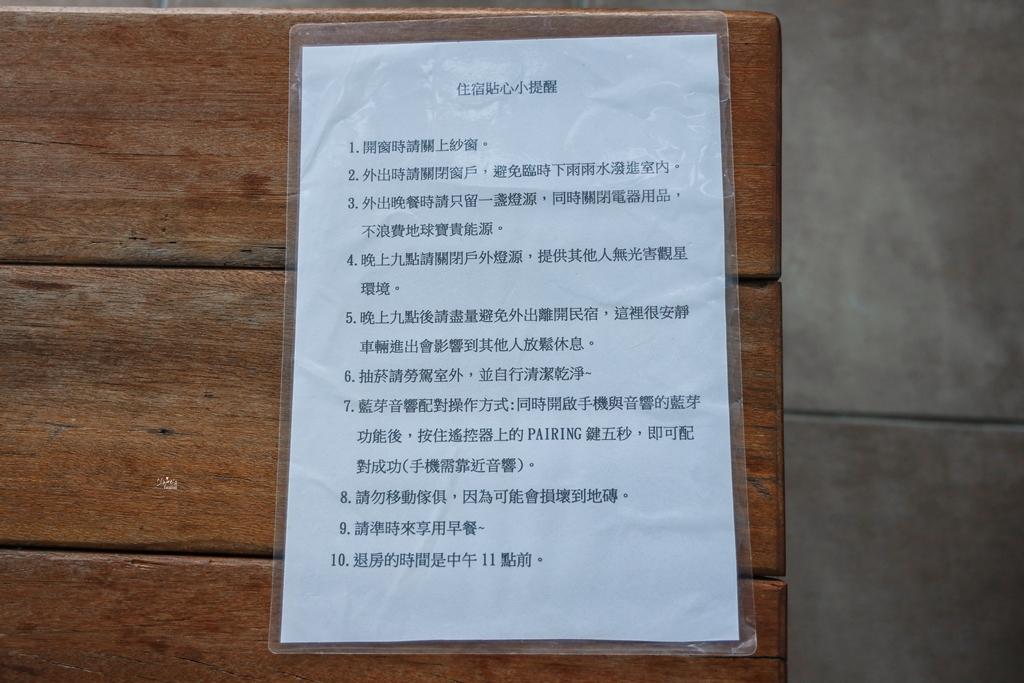 住宿貼心小提醒
1. 開窗時請關上紗窗。
2. 外出時請關閉窗戶，避免臨時下雨雨水潑進室內。
3. 外出晚餐時請只留一盞燈源，同時關閉電器用品，
不浪費地球寶貴能源。
4. 晚上九點請關閉戶外燈源，提供其他人無光害觀星
環境。
5. 晚上九點後請盡量避免外出離開民宿，這裡很安靜
車輛進出會影響到其他人放鬆休息。
6. 抽菸請勞駕室外，並自行清潔乾淨~
7. 藍芽音響配對操作方式:同時開啟手機與音響的藍芽
功能後，按住遙控器上的 PAIRING 鍵五秒，即可配
對成功(手機需靠近音響)。
8. 請勿移動傢俱，因為可能會損壞到地磚。
9. 請準時來享用早餐~
10. 退房的時間是中午 11 點前。